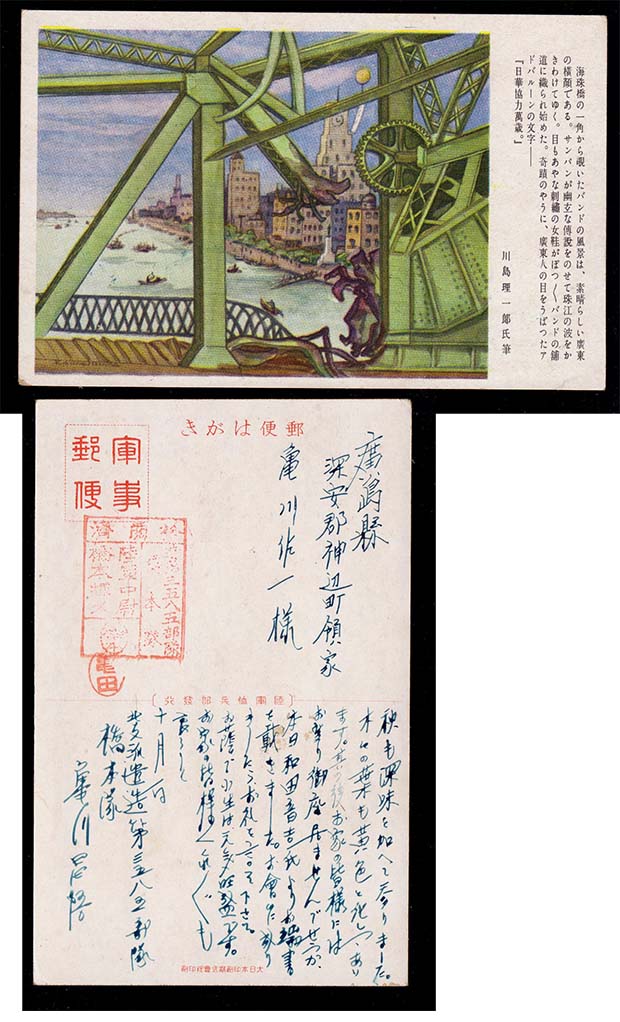 海珠橋の一角から覗いたバンドの風景は、素晴らしい廣東
の横顔である。サンパンが幽玄な傳説をのせて珠江の波をか
きわけてゆく。目もあやな刺繡の女鞋がぽつ〱バンドの舗
道に織られ始めた。奇蹟のやうに、廣東人の目をうばつたア
ドバルーンの文字――
『日華協力萬歳。』
川島理一郎氏筆
郵便はがき
軍事
郵便
廣島縣
深安郡神辺町領家
亀川佐一様
検閲済
三五八五部隊
橋本隊
陸軍中尉
亀田
陸軍恤兵部發行
秋も深味を加へて参りました。
木々の葉も黄色と化しつゝあり
ます。其の後お家の皆様には
お変り御座居ませんでせうか。
本日和田音吉氏よりお端書
を戴きました。お會ひに
ましたらお礼を言つて下さい。
お蔭で小生は元気旺盛です。
お家の皆様へくれ〲も
十月一日
第三五八五部隊
橋本隊
亀川
大日本印刷株式會社印刷